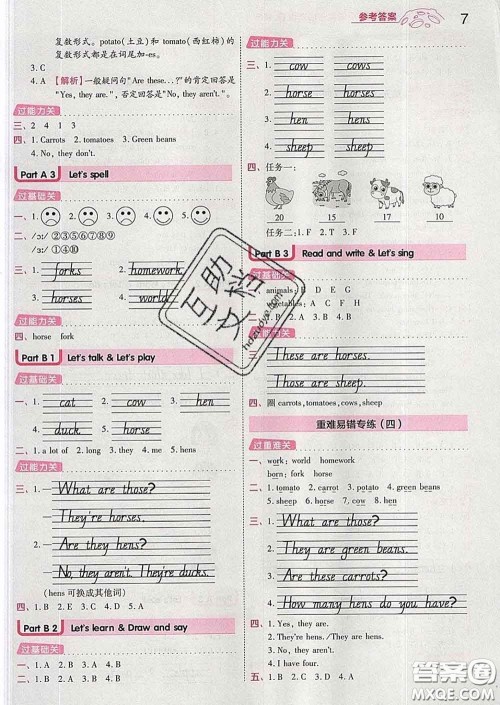 参考答案
7
复数形式。potato(土豆)和 tomato(西红柿)的
复数形式是在词尾加-es。
3. C
4. A 【解析】一般疑问句“Are these...?”的肯定回答是
“Yes, they are.”,否定回答是“No, they aren't.”
过能力关
三、2 4 1 3
四、1. Carrots 2. tomatoes 3. Green beans
4. No, they don't.
Part A 3 Let's spell
过基础关
二、/ɔː/ ②③⑤⑥⑦⑧⑨
/ɜː/ ①④⑩
三、1. forks 2. homework
3. horses 4. world
过能力关
四、horse fork
Part B 1 Let's talk & Let's play
过基础关
一、1. cat cow hen
4. duck horse
二、1. like 2. do 3. 4. they 5. me
过能力关
三、1. What are those?
They're horses.
2. Are they hens?
No, they aren't. They're ducks.
(hens 可换成其他词)
四、1. B 2. C 3. A 4. D
Part B 2 Let's learn & Draw and say
过基础关
一、1. A 2. B 3. A 4. B
过能力关
三、1. cow cows
2. horse horses
3. hen hens
4. sheep sheep
四、任务一:
20 15 17 10
任务二:1. T 2. F
Part B 3 Read and write & Let's sing
过基础关
一、animals: B D E G
vegetables: A C F H
二、1. B 2. B 3. A 4. A
过能力关
These are horses.
Those are sheep.
四、圈 carrots, tomatoes, cows, sheep
重难易错专练(四)
过重难关
一、work: world homework
born: fork horse
二、1. tomato 2. carrot 3. potato 4. green bean
5. horse 6. sheep 7. cow 8. hen
三、1. What are these?
2. They are green beans.
3. Are they carrots?
4. How many hens do you have?
四、1. are
2. They're hens. /They are hens.
3. No, they aren't.
4. I have four.
五、1. B 2. C 3. A 4. B 5. A
互助文档
hdzuoye.com
答案圈
MXQE.COM